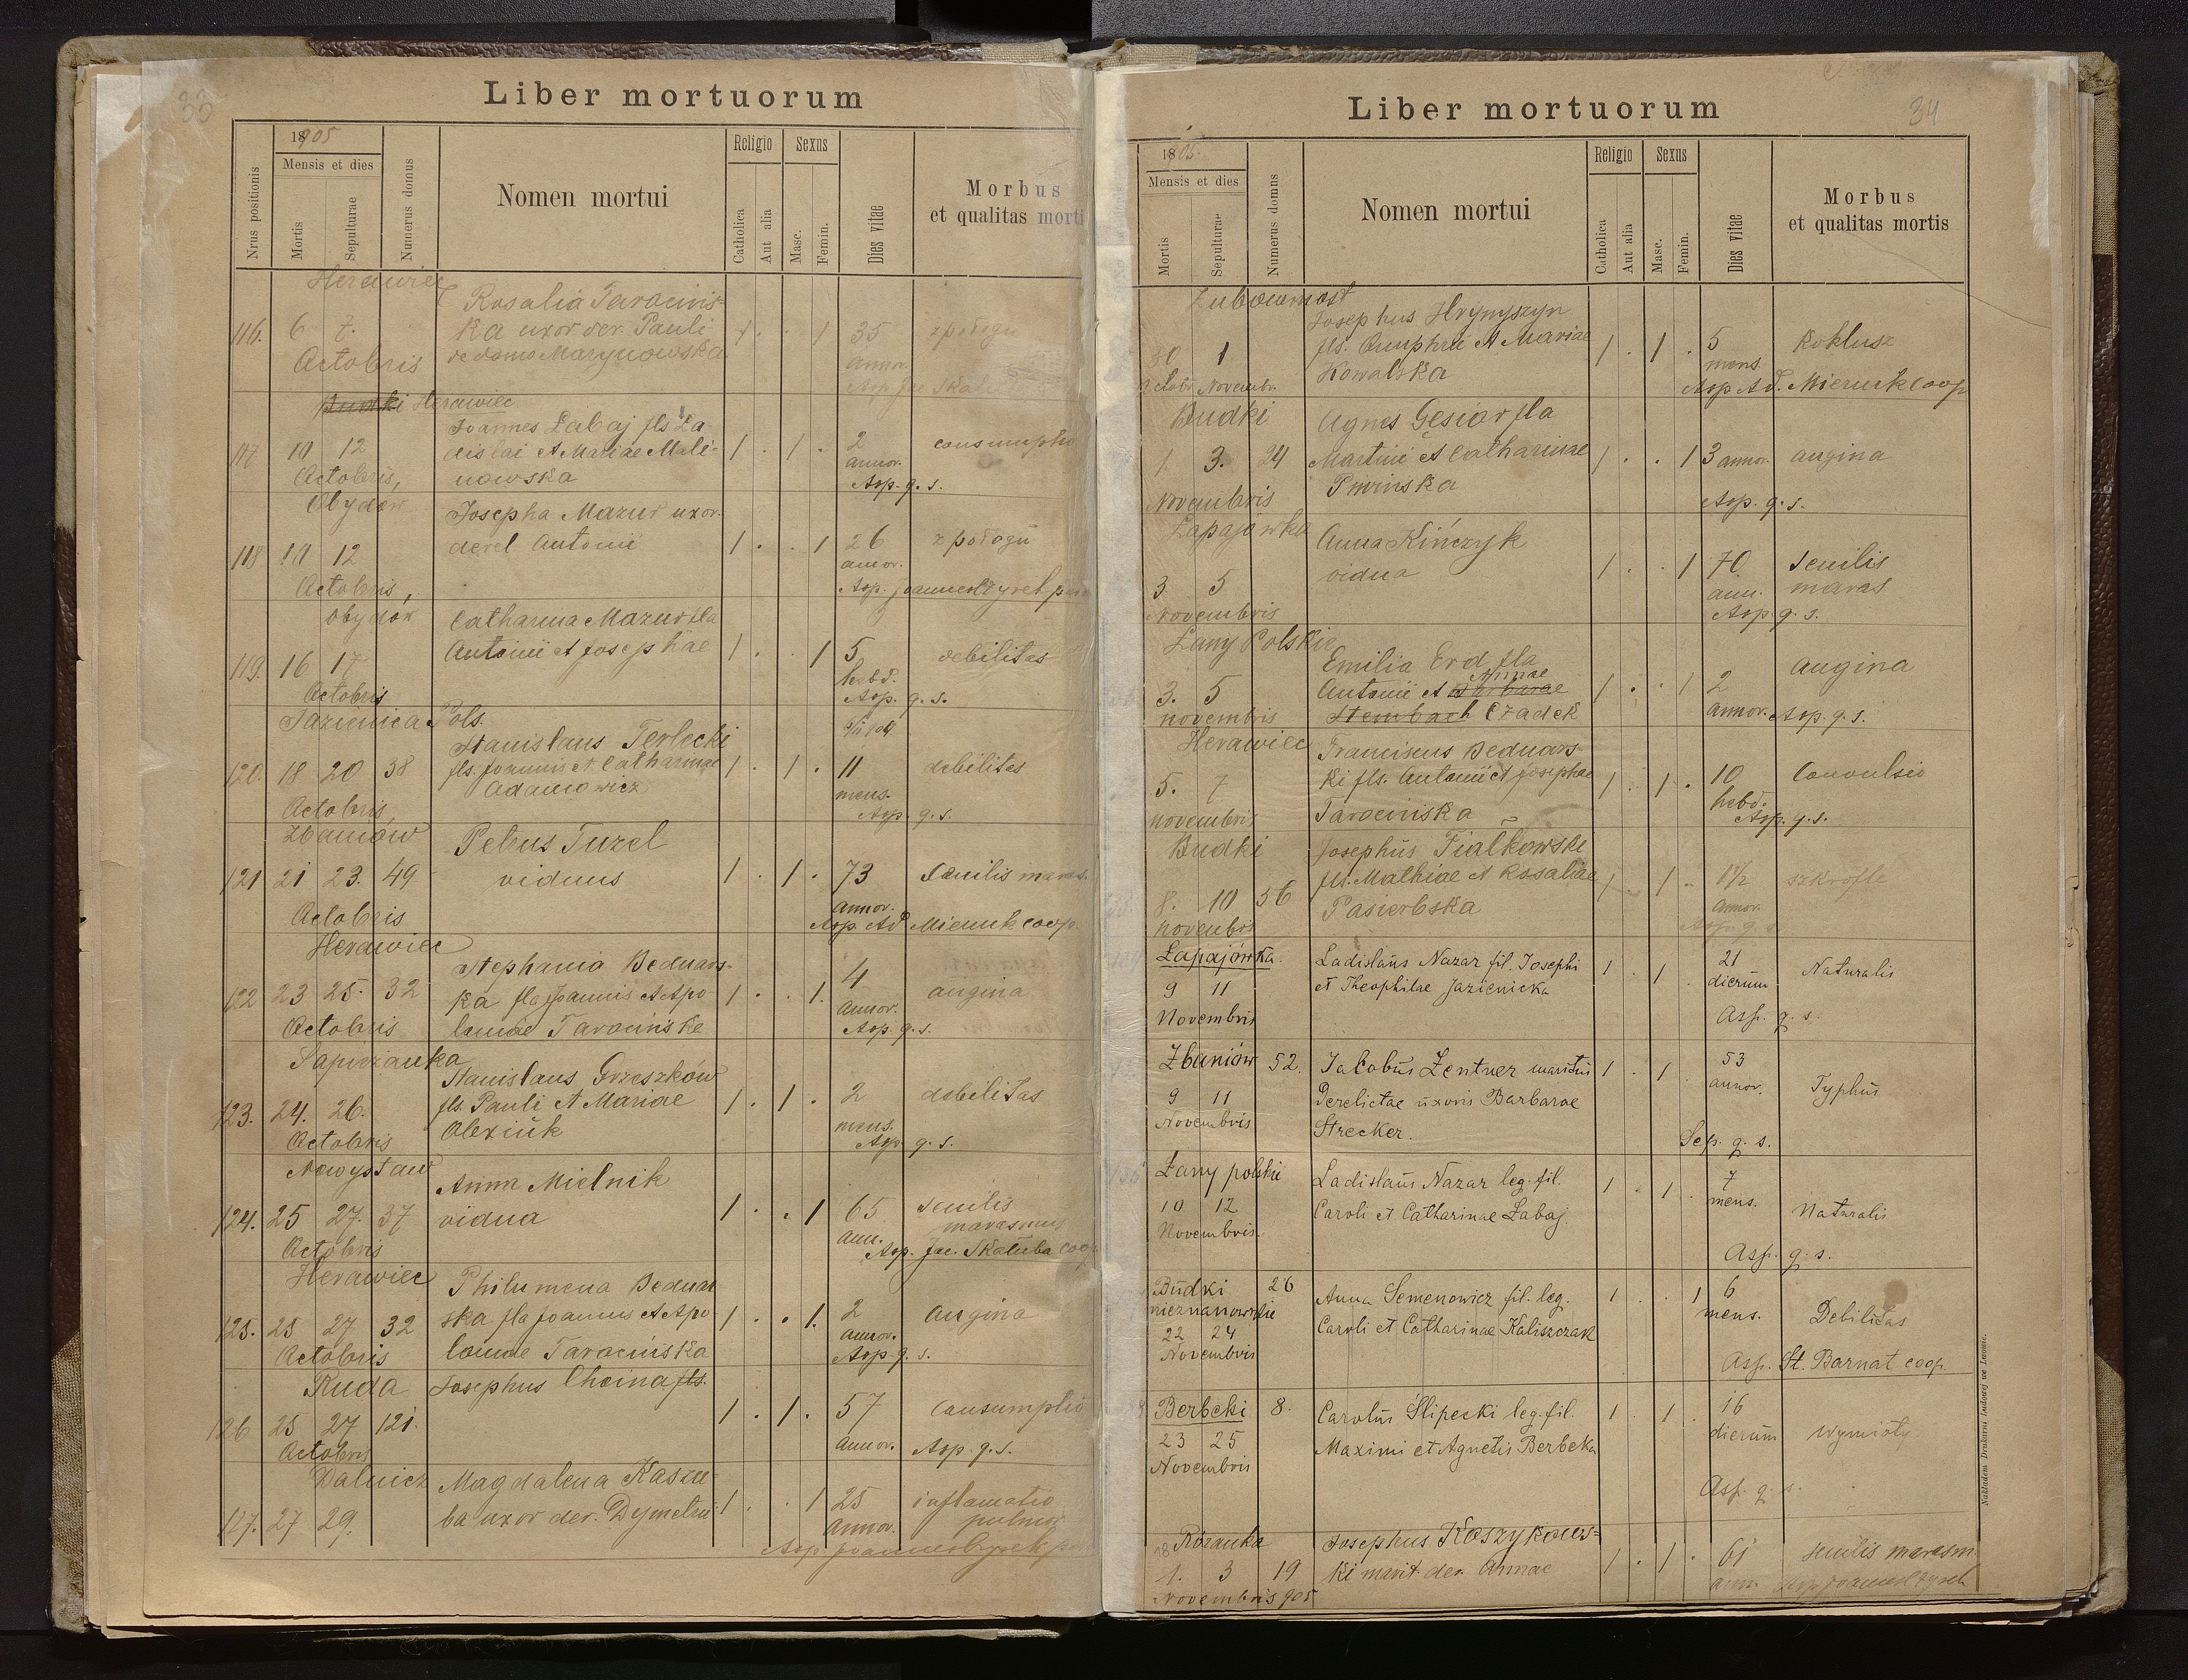 33
Liber mortuorum
1905
Nrus positionis
Mensis et dies
Mortis
Sepulturae
Numerus domus
Nomen mortui
Religio
Catholica
Aut alia
Sexus
Masc.
Femin.
Dies vitae
Morbus
et qualitas morti
Herawiec
116. 6 7. Octobris
Rosalia Tarocińs-
ka uxor der. Pauli
de domo Marynowska
1 . . 1 35 annor. z połogu
Asp. Jac Skał
Budki Herawiec
117 10 12 Octobris,
Joannes Łabaj fls La
dislai et Mariae Mali-
nowska
1 . 1 . 2 annor. consumptio
Asp. q. s.
Obydów
118 10 12 Octobris,
Josepha Mazur uxor.
derel Antonii
1 . . 1 26 annor. z połogu
Asp. Joannes Dyrek
Obydów
119. 16 17 Octobris
Catharina Mazur fla
Antonii et Josephae
1 . . 1 5 hebd. debilitas
Asp. q. s.
Jazienica Pols.
120. 18 20 38 Octobris,
Stanislaus Terlecki
fls. Joannis et Catharinae
Adamowicz
1 . 1 . 11 mens. debilitas
Asp. q. s.
Zbaniów
121 21 23. 49 Octobris
Petrus Turel
viduus
1 . 1 . 73 annor. Senilis maras.
Asp. Ad Mieruk coop.
Herawiec
122 23 25. 32 Octobris
Stephania Bednars-
ka fla Joannis et Apo
loniae Tarocińska
1 . . 1. 4 Annor. angina
Asp. q. s.
Sapieżanka
123. 24. 26. Octobris
Stanislaus Grzeszków
fls. Pauli et Mariae
Olexiuk
1 . 1 . 2 mens. debilitas
Asp. q. s.
Nowystaw
124. 25 27. 37 Octobris
Anna Mielnik
vidua
1 . . 1 65 ann. senilis
marasmus
Asp. Jac. Skałuba coop
Herawiec
125. 25 27 32 Octobris
Philumena Bednar
ska fla Joannis et Apo-
loniae Tarocińska
1 . . 1. 2 annor. Angina
Asp. q. s.
Ruda
126 25 27 121. Octobris
Josephus Choina fls.
1 . 1 . 57 Annor. Consumptio
Asp. q. s.
Dalnicz
117. 27 29.
Magdalena Kaszu-
ba uxor der. Dymetrii
1 . . 1 25 annor. inflamatio
pulmon
Asp. Joannes Dyrek
34
Liber mortuorum
1905.
Mensis et dies
Mortis
Sepulturae
Numerus domus
Nomen mortui
Religio
Catholica
Aut alia
Sexus
Masc.
Femin.
Dies vitae
Morbus
et qualitas mortis
Zubowmost
30 1 Octobr. Novembr.
Josephus Hrynyszyn
fls. Onuphrii et Mariae
Kowalska
1 . 1 . 5 mens. Koklusz
Asp Ad. Mieruk coop
Budki
1. 3. 24 Novembris
Agnes Gęsior fla
Martini et Catharinae
1 . . 1 3 annor. angina
Asp. q. s.
Łapajówka
3 5 Novembris
Anna Kińczyk
vidua
1 . . 1 70 ann. Senilis
maras
Asp q. s.
Łany Polskie
3. 5 novembris
Emilia Erd fla
Annae
Antonii et Barbarae
Stembach Czadek
1 . . 1 2 annor. angina
Asp. q. s.
Herawiec
5. 7 novembris
Franciscus Bednars-
ki fls. Antonii et Josephae
Tarocińska
1 . 1 . 10 hebd. Convulsio
Asp. q. s.
Budki
8. 10 56 novembris
Josephus Fialkowski
fls. Mathiae et Rosaliae
Pasierbska
1 . 1 . 1 1/2 annor. szkrofle
Asp. q. s.
Łapajówka.
9 11 Novembris
Ladislaus Nazar fil. Josephi
et Theophilae Jazienicka
1 . 1 . 21 dierum Naturalis
Asp. q. s.
Zbaniów 52.
9 11 Novembris
Jacobus Zentner maritus
Derelictae uxoris Barbarae
Strecker.
1 . 1 . 53 annor. Typhus
Sep. q. s.
Łany polskie
10 12 Novembris.
Ladislaus Nazar leg. fil.
Caroli et Catharinae Łabaj.
1 . 1 . 7 mens. Naturalis
Asp. q. s.
Budki 26
nieznanowskie
22 24 Novembris
Anna Semenowicz fil. leg.
Caroli et Catharinae Kaliszczak
1 . . 1 6 mens. Debilitas
Asp. St. Barnat coop.
Berbeki 8.
23 25 Novembris
Carolus Ślipecki leg. fil.
Maximi et Agnetis Berbeka
1 . 1 . 16 dierum Wymioty
Asp. q. s.
Różanka
1. 3 19 Novembris 905
Josephus Koszykows-
ki marit. der. Annae
1 . 1 . 61 ann. senilis marasm.
Asp Joannes Dyrek
Nakładem Drukarni Ludowej we Lwowie.